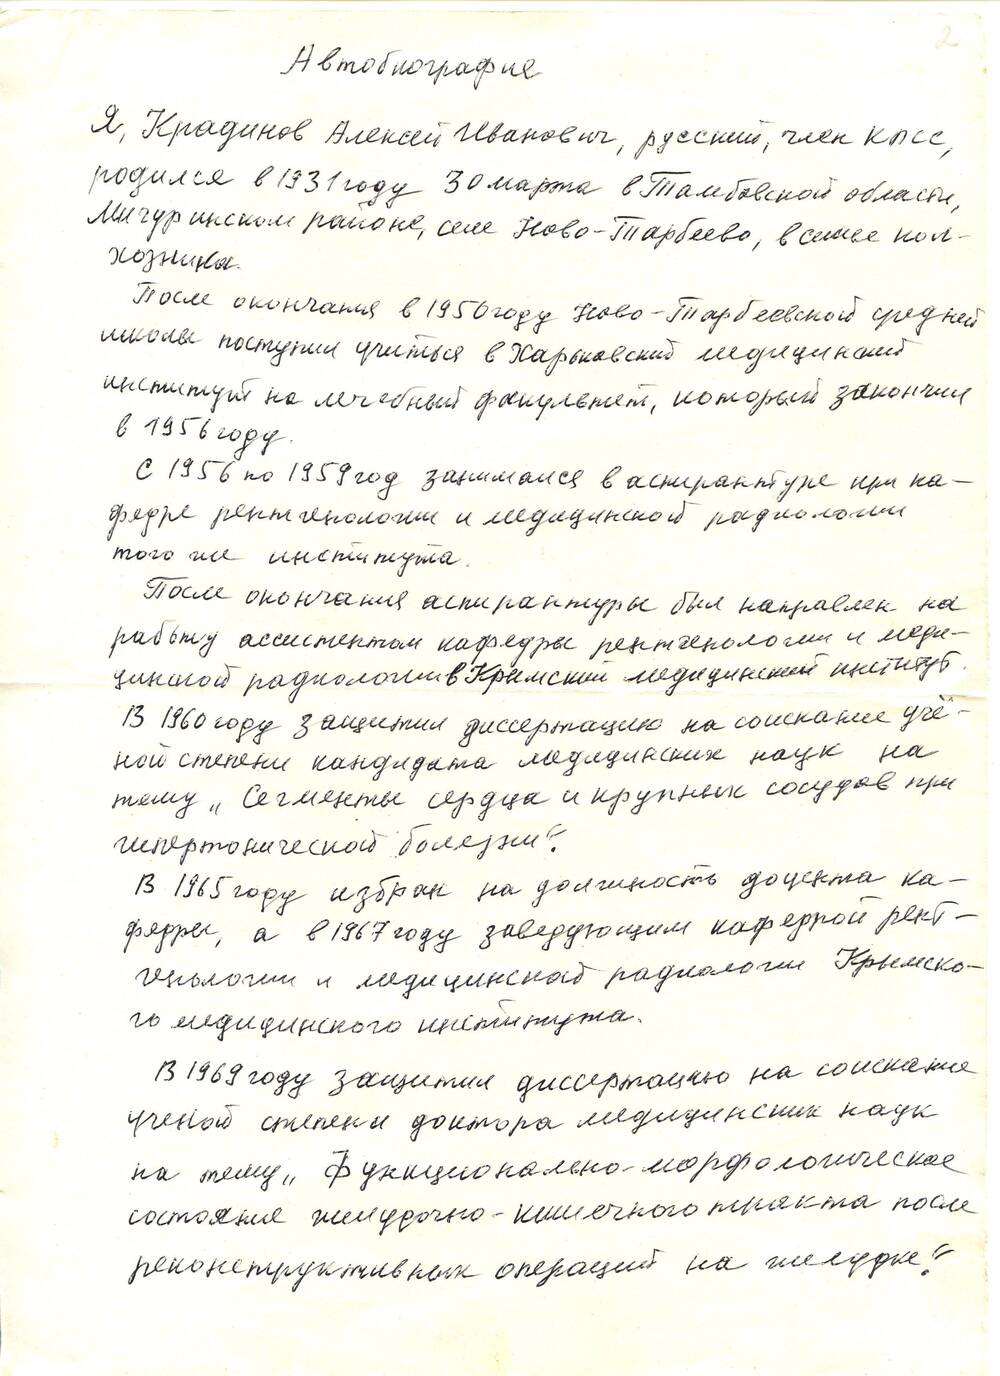 2
Автобиография
Я, Крадинов Алексей Иванович, русский, член КПСС,
родился в 1931 году 30 марта в Тамбовской области,
Мичуринском районе, селе Ново-Тарбеево, в семье кол-
хозника.
После окончания в 1950 году Ново-Тарбеевской средней
школы поступил учиться в Харьковский медицинский
институт на лечебный факультет, который закончил
в 1956 году.
С 1956 по 1959 год занимался в аспирантуре при ка-
федре рентгенологии и медицинской радиологии
того же института.
После окончания аспирантуры был направлен на
работу ассистентом кафедры рентгенологии и меди-
цинской радиологии в Крымский медицинский институт.
В 1960 году защитил диссертацию на соискание учё-
ной степени кандидата медицинских наук на
тему „Сегменты сердца и крупных сосудов при
гипертонической болезни".
В 1965 году избран на должность доцента ка-
федры, а в 1967 году заведующим кафедрой рент-
генологии и медицинской радиологии Крымско-
го медицинского института.
В 1969 году защитил диссертацию на соискание
ученой степени доктора медицинских наук
на тему „Функционально-морфологическое
состояние желудочно-кишечного тракта после
реконструктивных операций на желудке".